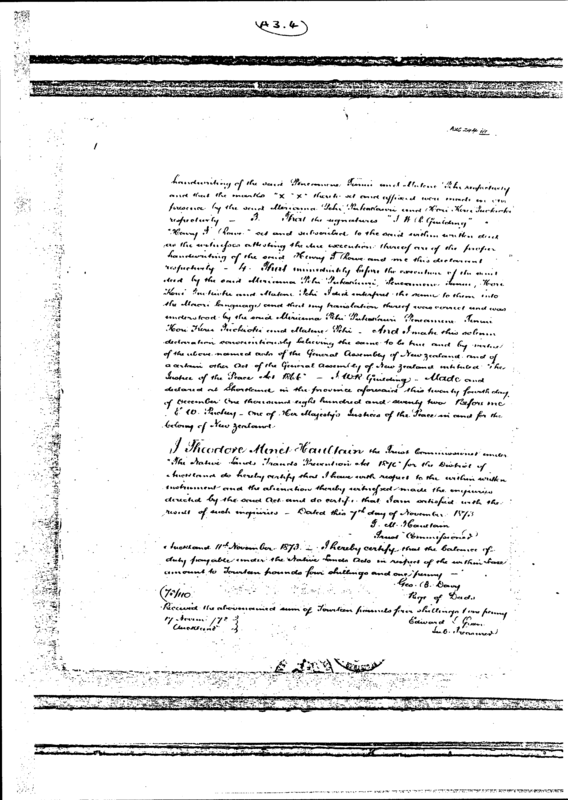 A 3.4
1
handwriting of the said and respectively
and that the marks "X" "X" thereto set and affixed were made in our
presence by the said Miriama Pehi and Hori Kere
respectively — 3. That the signatures "J W R Guilding"
"Henry F Rowe" set and subscribed to the said within written deed
as the witnesses attesting the due execution thereof are of the proper
handwriting of the said Henry F Rowe and me this declarant
respectively — 4. That immediately before the execution of the said
deed by the said Miriama Pehi Hori
Kere and Pehi I did interpret the same to them into
the Maori language and that my translation thereof was correct and was
understood by the said Miriama Pehi
Hori Kere and Pehi — And I make this solemn
declaration conscientiously believing the same to be true and by virtue
of the above named acts of the General Assembly of New Zealand and of
a certain other Act of the General Assembly of New Zealand intituled "The
Justice of the Peace Act 1866" — J W R Guilding — Made and
declared at Shortland in the province aforesaid this twenty fourth day
of December One thousand eight hundred and seventy two Before me
W. — One of Her Majesty's Justices of the Peace in and for the
Colony of New Zealand
I Theodore Minet Haultain the Trust Commissioner under
"The Native Lands Frauds Prevention Act 1870" for the District of
Auckland do hereby certify that I have with respect to the within written
instrument and the alienation thereby witnessed made the inquiries
directed by the said Act and do certify that I am satisfied with the
result of such inquiries — Dated this 7th day of November 1873
T. M. Haultain
Trust Commissioner
Auckland 11th November 1873 — I hereby certify that the balance of
duty payable under the Native Lands Acts in respect of the within Lease
amount to Fourteen pounds four shillings and one penny —
Geo. B. Davy
Regr of Deeds
Received the abovenamed sum of Fourteen pounds four shillings & one penny
17 Novem /73
Auckland
Edward